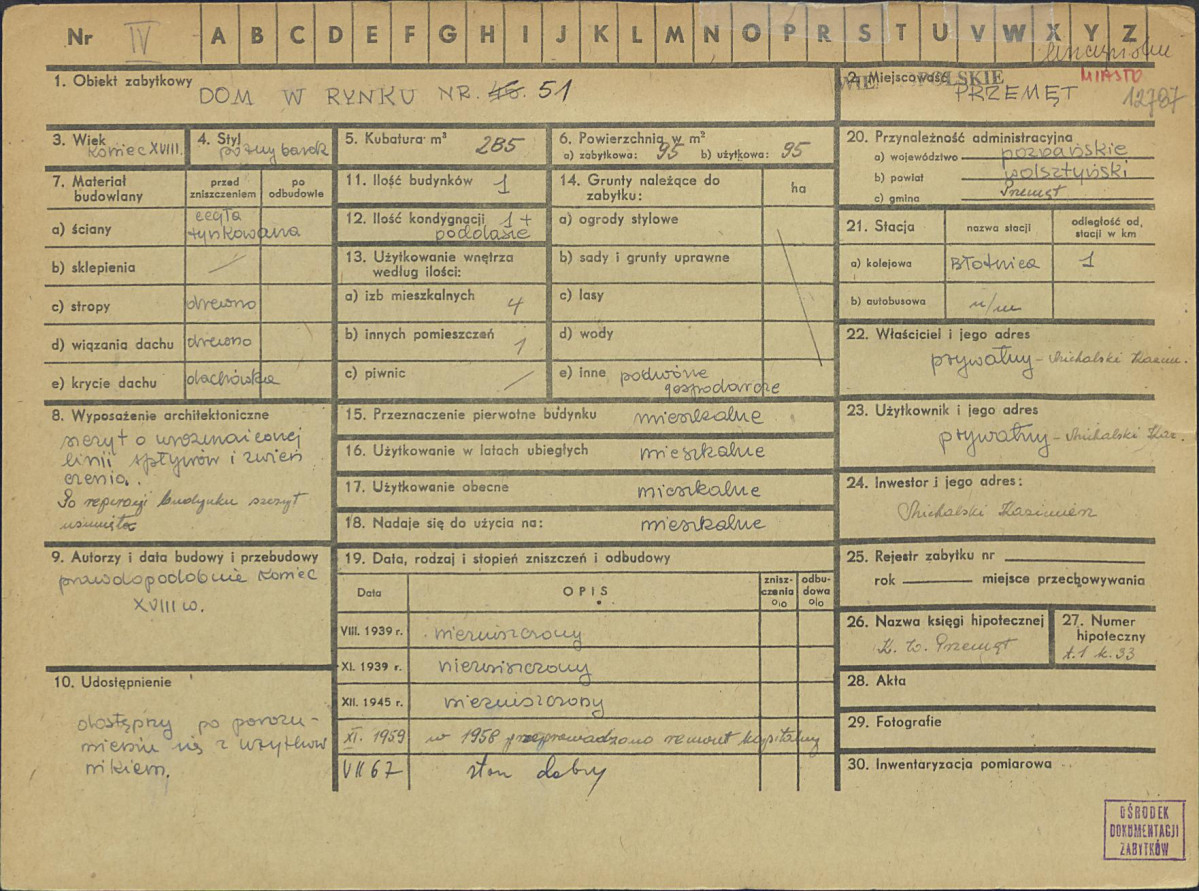 Nr IV A B C D E F G H I J K L M N O P R S T U V W X Y Z
1. Obiekt zabytkowy
DOM W RYNKU NR. 46. 51
2. Miejscowość
POLSKIE
MIASTO
PRZEMĘT
12787
3. Wiek
koniec XVIII.
4. Styl
późny barok
5. Kubatura m³
285
6. Powierzchnia w m²
a) zabytkowa: 95 b) użytkowa: 95
7. Materiał budowlany
przed zniszczeniem
po odbudowie
a) ściany
cegła
tynkowana
b) sklepienia —
c) stropy drewno
d) wiązania dachu drewno
e) krycie dachu dachówka
8. Wyposażenie architektoniczne
szczyt o urozmaiconej
linii spływów i zwień
czenia.
Po reperacji budynku szczyt
usunięto
9. Autorzy i data budowy i przebudowy
prawdopodobnie koniec
XVIII w.
10. Udostępnienie
dostępny po porozu-
mieniu się z użytkow
nikiem.
11. Ilość budynków 1
12. Ilość kondygnacji 1 +
poddasze
13. Użytkowanie wnętrza
według ilości:
a) izb mieszkalnych 4
b) innych pomieszczeń 1
c) piwnic —
14. Grunty należące do
zabytku:
ha
a) ogrody stylowe
b) sady i grunty uprawne
c) lasy
d) wody
e) inne podwórze
gospodarcze
15. Przeznaczenie pierwotne budynku mieszkalne
16. Użytkowanie w latach ubiegłych mieszkalne
17. Użytkowanie obecne mieszkalne
18. Nadaje się do użycia na: mieszkalne
19. Data, rodzaj i stopień zniszczeń i odbudowy
Data
OPIS
znisz-
czenia
%
odbu-
dowa
%
VIII. 1939 r. niezniszczony
XI. 1939 r. niezniszczony
XII. 1945 r. niezniszczony
XI. 1959 w 1958 przeprowadzono remont kapitalny
VII 67 stan dobry
20. Przynależność administracyjna
a) województwo poznańskie
b) powiat wolsztyński
c) gmina Przemęt
21. Stacja
nazwa stacji
odległość od,
stacji w km
a) kolejowa Błotnica 1
b) autobusowa n/m
22. Właściciel i jego adres
prywatny - Michalski Kazim.
23. Użytkownik i jego adres
prywatny - Michalski Kaz.
24. Inwestor i jego adres:
Michalski Kazimierz
25. Rejestr zabytku nr
rok miejsce przechowywania
26. Nazwa księgi hipotecznej
K. W. Przemęt
27. Numer
hipoteczny
t.1 k.33
28. Akta
29. Fotografie
30. Inwentaryzacja pomiarowa
OŚRODEK
DOKUMENTACJI
ZABYTKÓW